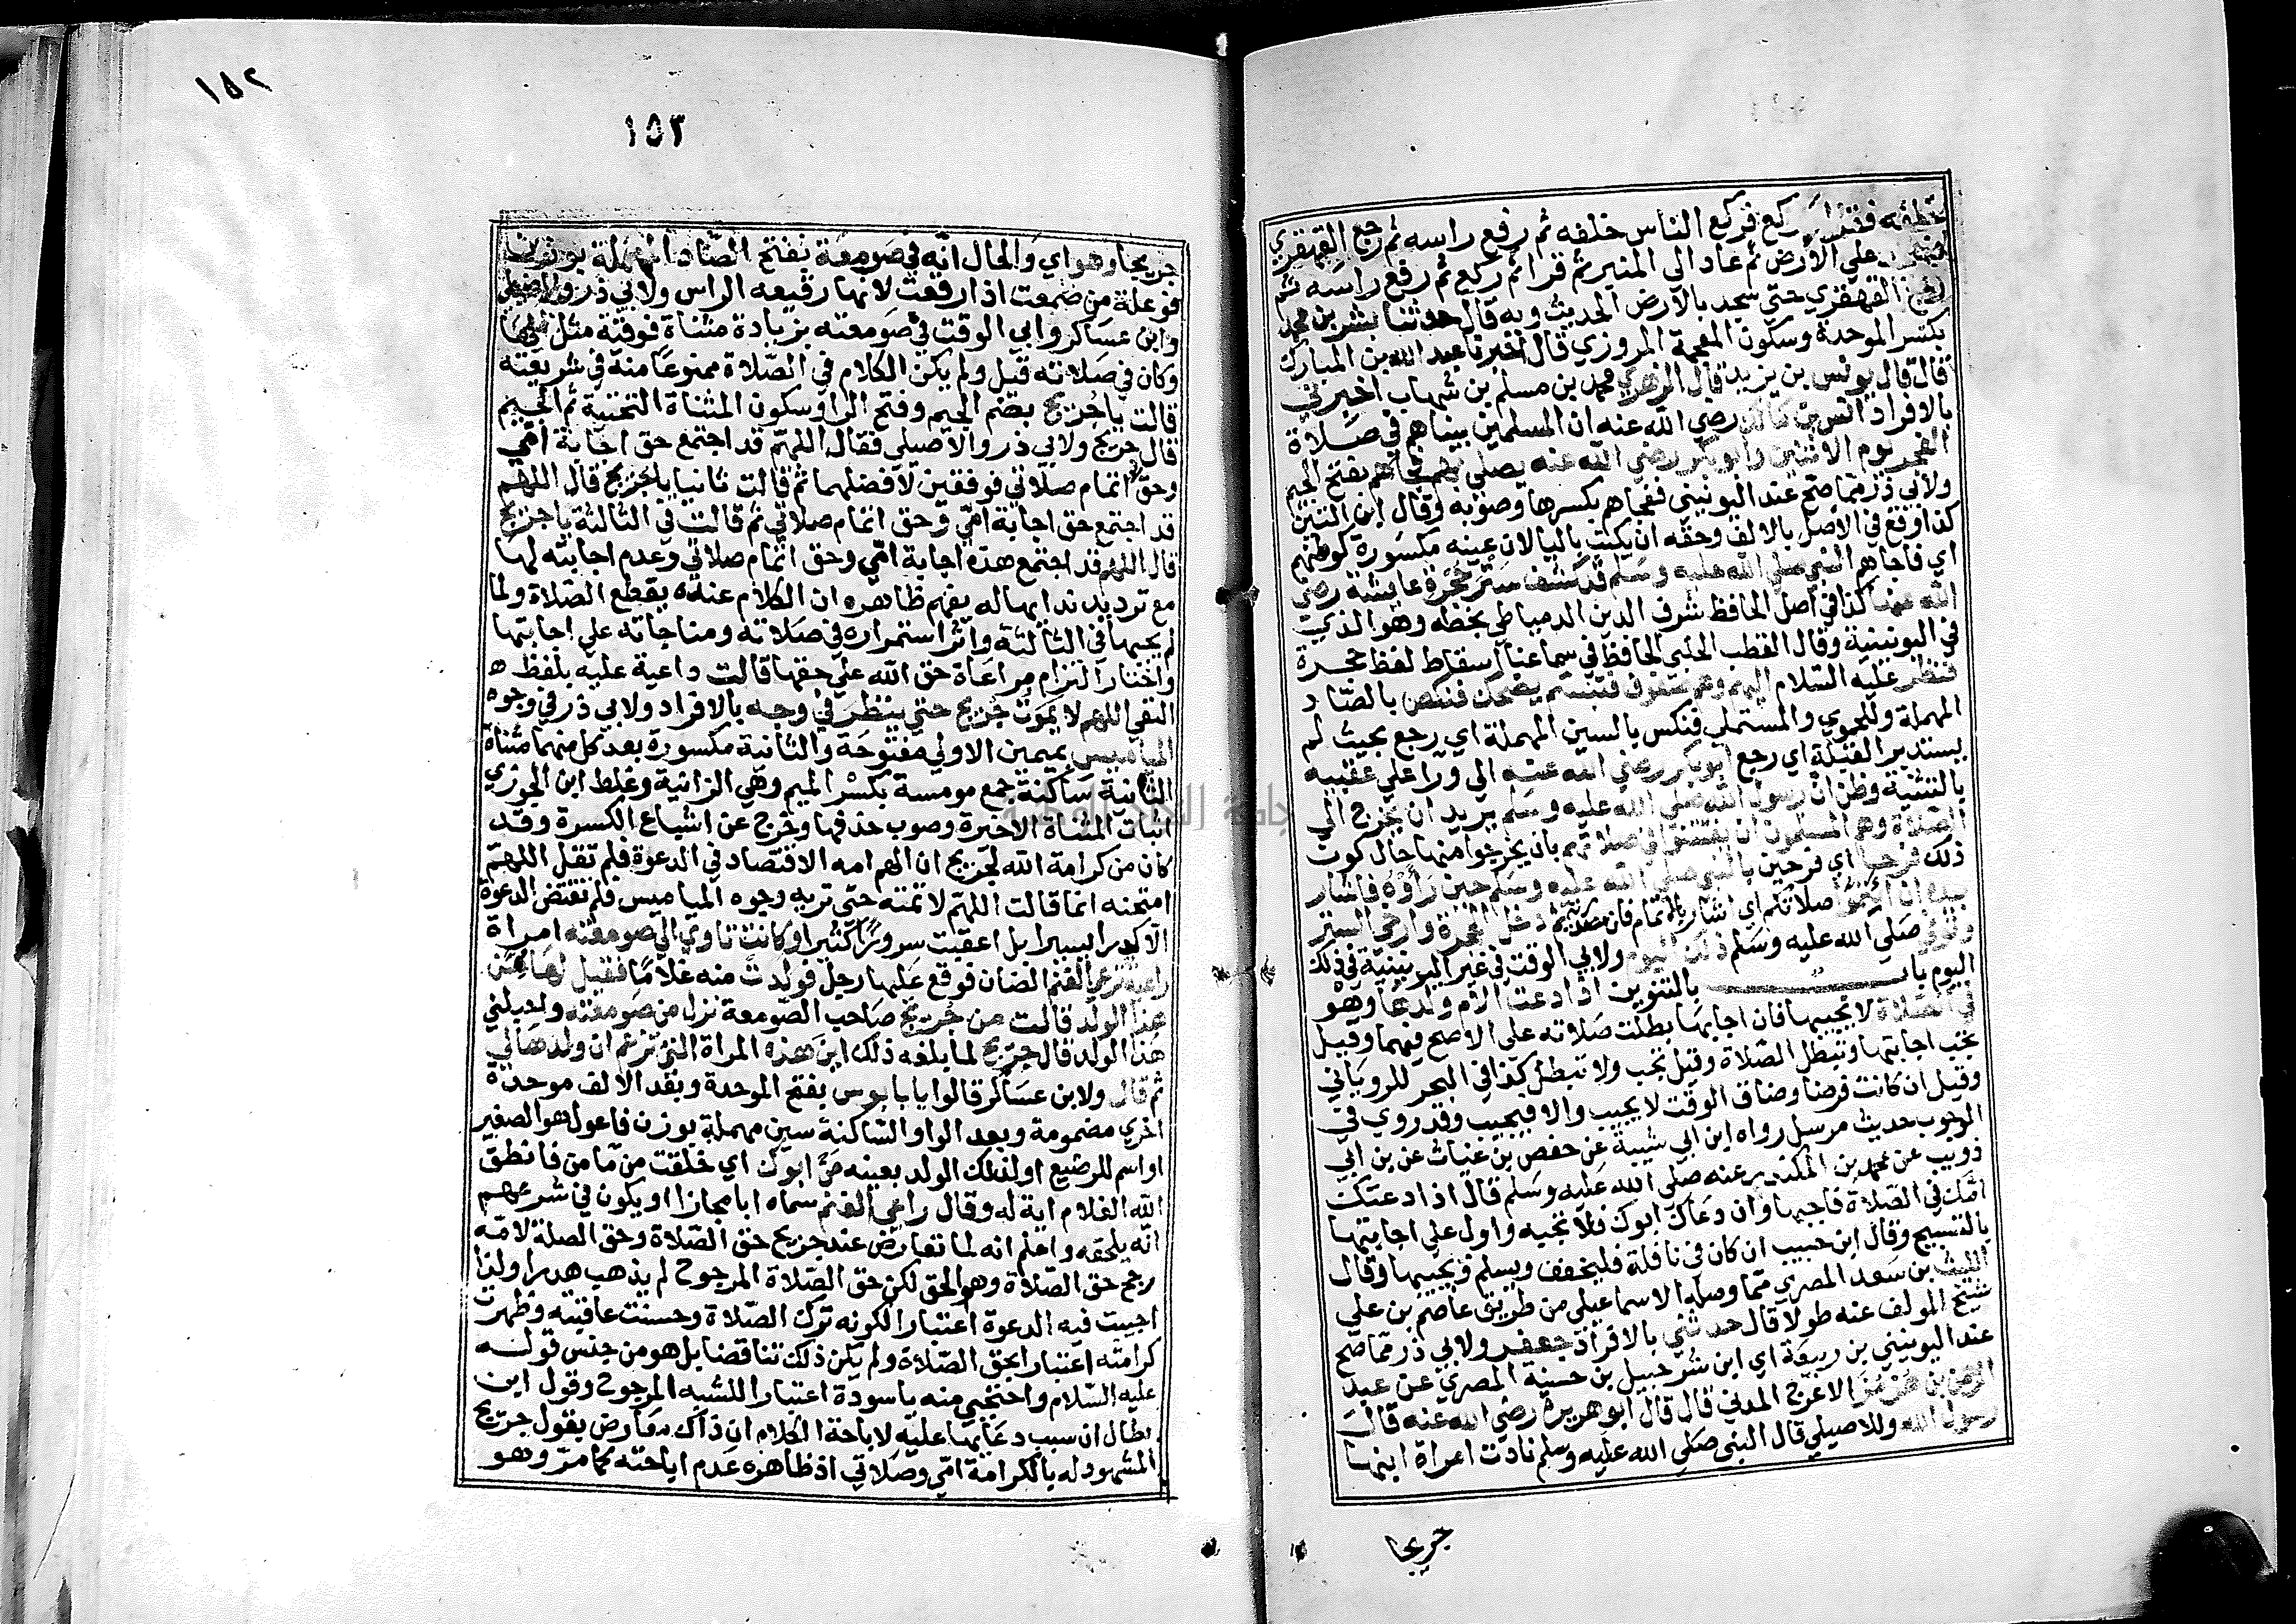 ركع فركع الناس خلفه ثم رفع راسه ثم رجع القهقري
علي الارض ثم عاد الي المنبر ثم قرا ثم ركع ثم رفع راسه ثم
القهقري حتي سجد بالارض الحديث وبه قال حدثنا بشر بن محمد
بكسر الموحدة وسكون المعجمة المروزي قال اخبرنا عبد الله بن المبارك
قال قال يونس بن يزيد قال الزهري محمد بن مسلم بن شهاب اخبرني
بالافراد انس بن مالك رضي الله عنه ان المسلمين بيناهم في صلاة
الفجر يوم الاثنين وابو بكر رضي الله عنه يصلي بهم ففجاهم بفتح الجيم
ولابي ذر مما صح عند اليونيني ففجاهم بكسرها وصوبه وقال ابن التين
كذا وقع في الاصل بالالف وحقه ان يكتب باليا لان عينه مكسورة كوطيهم
اي فاجاهم النبي صلي الله عليه وسلم قد كشف ستر حجرة عايشة رضي
الله عنها كذا في اصل الحافظ شرف الدين الدمياطي بخطه وهو الذي
في اليونينية وقال القطب الحلبي الحافظ في سماعنا اسقاط لفظ حجرة
فنظر عليه السلام اليهم وهم صفوف فتبسم يضحك فنكص بالصاد
المهملة وللحموي والمستملي فنكس بالسين المهملة اي رجع بحيث لم
يستدير القبلة اي رجع ابو بكر رضي الله عنه الي ورا علي عقبيه
بالتثنية وظن ان رسول الله صلي الله عليه وسلم يريد ان يخرج الي
الصلاة وهم المسلمون ان يفتتنوا في صلاتهم بان يخرجوا منها حال كون
ذلك فرحا اي فرحين بالنبي صلي الله عليه وسلم حين راوه فاشار
بيده ان اتموا صلاتكم اي اشار بالاتمام ثم دخل الحجرة وارخي الستر
وتوفي صلي الله عليه وسلم ذلك اليوم ولابي الوقت في غير اليونينية في ذلك
اليوم باب بالتنوين اذا دعت الام ولدها وهو
في الصلاة لا يجيبها فان اجابها بطلت صلاته علي الاصح فيهما وقيل
تجب اجابتها وتبطل الصلاة وقيل تجب ولا تبطل كذا في البحر للروياني
وقيل ان كانت فرضا وضاق الوقت لا يجيب والا فيجيب وقد روي في
الوجوب حديث مرسل رواه ابن ابي شيبة عن حفص بن غياث عن بن ابي
ذويب عن محمد بن المكندر عنه صلي الله عليه وسلم قال اذا دعتك
امك في الصلاة فاجبها وان دعاك ابوك فلا تجبه واول علي اجابتها
بالتسبيح وقال ابن حبيب ان كان في نافلة فليخفف ويسلم ويجيبها وقال
الليث بن سعد المصري مما وصله الاسماعيلي من طريق عاصم بن علي
شيخ المولف عنه طولا قال حدثني بالافراد جعفر ولابي ذر مما صح
عند اليونيني بن ربيعة اي ابن شرحبيل بن حسنة المصري عن عبد
الرحمن بن هرمز الاعرج المدني قال قال ابو هريرة رضي الله عنه قال
رسول الله وللاصيلي قال النبي صلي الله عليه وسلم نادت امراة ابنها
جريجا
١٥٢
١٥٣
جريجا وهو اي والحال انه في صومعة بفتح الصاد المهملة بوزن
فوعلة من صمعت اذا رفعت لانها رقيعه الراس ولابي ذر والاصيلي
وابن عساكر وابي الوقت في صومعته بزيادة مثناة فوقية مثل
وكان في صلاته قبل ولم يكن الكلام في الصلاة ممنوعا منه في شريعته
قالت يا جريج بضم الجيم وفتح الرا وسكون المثناة التحتية ثم الجيم
قال جريج ولابي ذر والاصيلي فقال اللهم قد اجتمع حق اجابة امي
وحق اتمام صلاتي فوفقني لافضلهما ثم قالت ثانيا يا جريج قال اللهم
قد اجتمع حق اجابة امي وحق اتمام صلاتي ثم قالت في الثالثة يا جريج
قال اللهم قد اجتمع هذه اجابة امي وحق اتمام صلاتي وعدم اجابته لها
مع ترديد ندايها له يفهم ظاهره ان الكلام عنده يقطع الصلاة ولما
لم يجبها في الثالثة واثر استمراره في صلاته ومناجاته علي اجابتها
واختار التزام مراعاة حق الله علي حقها قالت داعية عليه بلفظ
النفي اللهم لا يموت جريج حتي ينظر في وجه بالافراد ولابي ذر في وجوه
المياميس بميمين الاولي مفتوحة والثانية مكسورة بعد كل منهما مثناة
الثانية ساكنة جمع مومسة بكسر الميم وهي الزانية وغلط ابن الجوزي
اثبات المثناة الاخيرة وصوب حذفها وخرج عن اشباع الكسرة وقد
كان من كرامة الله لجريج ان الهم امه الاقتصاد في الدعوة فلم تقل اللهم
امتحنه انما قالت اللهم لا تمته حتي تريه وجوه المياميس فلم تقتض الدعوة
الا كدرا يسيرا بل اعقبت سرورا كثيرا وكانت تاوي الي صومعته امراة
راعية ترعي الغنم الضان فوقع عليها رجل فولدت منه غلاما فقيل لها ممن
هذا الولد قالت من جريج صاحب الصومعة نزل من صومعته واحبلني
هذا الولد قال جريج لما بلغه ذلك اين هذه المراة التي تزعم ان ولدها لي
ثم قال ولابن عساكر قالوا يا بابوس بفتح الموحدة وبعد الالف موحدة
اخري مضمومة وبعد الواو الساكنة سين مهملة بوزن فاعول هو الصغير
او اسم للرضيع او لذلك الولد بعينه من ابوك اي خلقت من ما من فانطق
الله الغلام اية له وقال راعي الغنم سماه ابا مجازا او يكون في شرعهم
انه يلحقه واعلم انه لما تعارض عند جريج حق الصلاة وحق الصلة لامه
رجح حق الصلاة وهو الحق لكن حق الصلاة المرجوح لم يذهب هدرا ولذا
اجيبت فيه الدعوة اعتبارا لكونه ترك الصلاة وحسنت عاقبته وظهرت
كرامته اعتبارا بحق الصلاة ولم يكن ذلك تناقضا بل هو من جنس قوله
عليه السلام واحتجبي منه يا سودة اعتبارا للشبه المرجوح وقول ابن
بطال ان سبب دعايها عليه لاباحة الكلام ان ذاك معارض بقول جريج
المشهود له بالكرامة امي وصلاتي اذ ظاهره عدم اباحته كما مر وهو